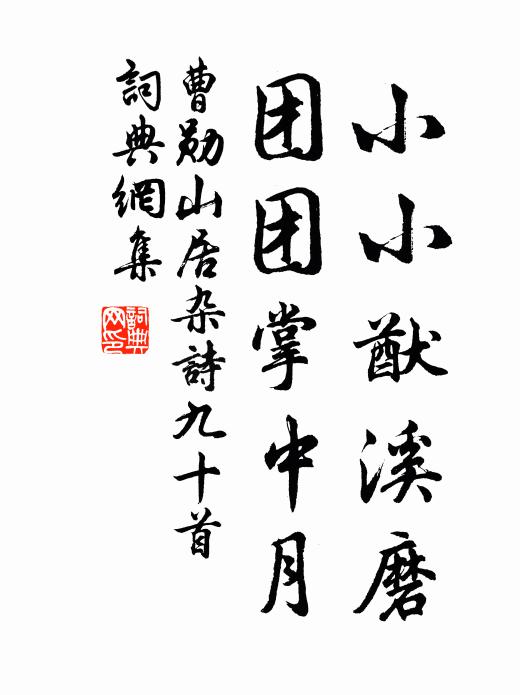 小小猷溪磨
团团掌中月
曹勋山居杂詩九十首
詞典網集
詞典网印